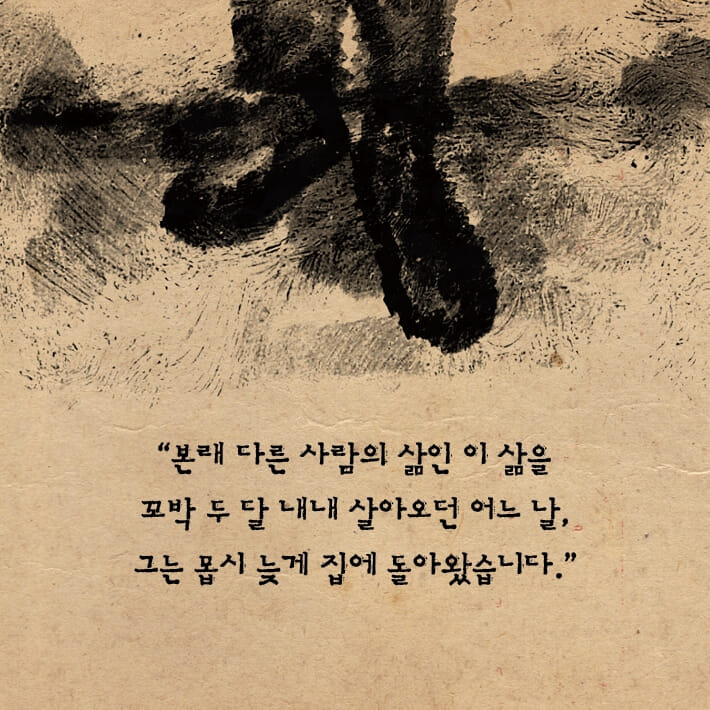 “본래 다른 사람의 삶인 이 삶을
꼬박 두 달 내내 살아오던 어느 날,
그는 몹시 늦게 집에 돌아왔습니다.”